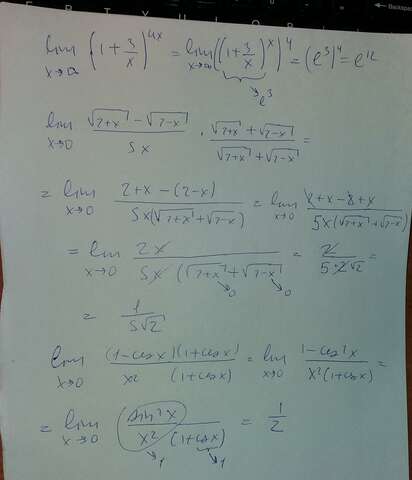 lim x→∞ (1 + 3/x)^4x = lim x→∞ ((1 + 3/x)^x)^4 = (e^3)^4 = e^12
→ e^3
lim x→0 (√2+x − √2−x)/5x · (√2+x + √2−x)/(√2+x + √2−x) =
= lim x→0 (2+x − (2−x))/(5x(√2+x + √2−x)) = lim x→0 (2+x−2+x)/(5x(√2+x + √2−x))
= lim x→0 2x/(5x (√2+x + √2−x)) = 2/(5·2√2) =
→0 →0
= 1/(5√2)
lim x→0 (1−cosx)(1+cosx)/(x² (1+cosx)) = lim x→0 (1−cos²x)/(x²(1+cosx)) =
= lim x→0 sin²x/(x² (1+cosx)) = 1/2
→1 →1